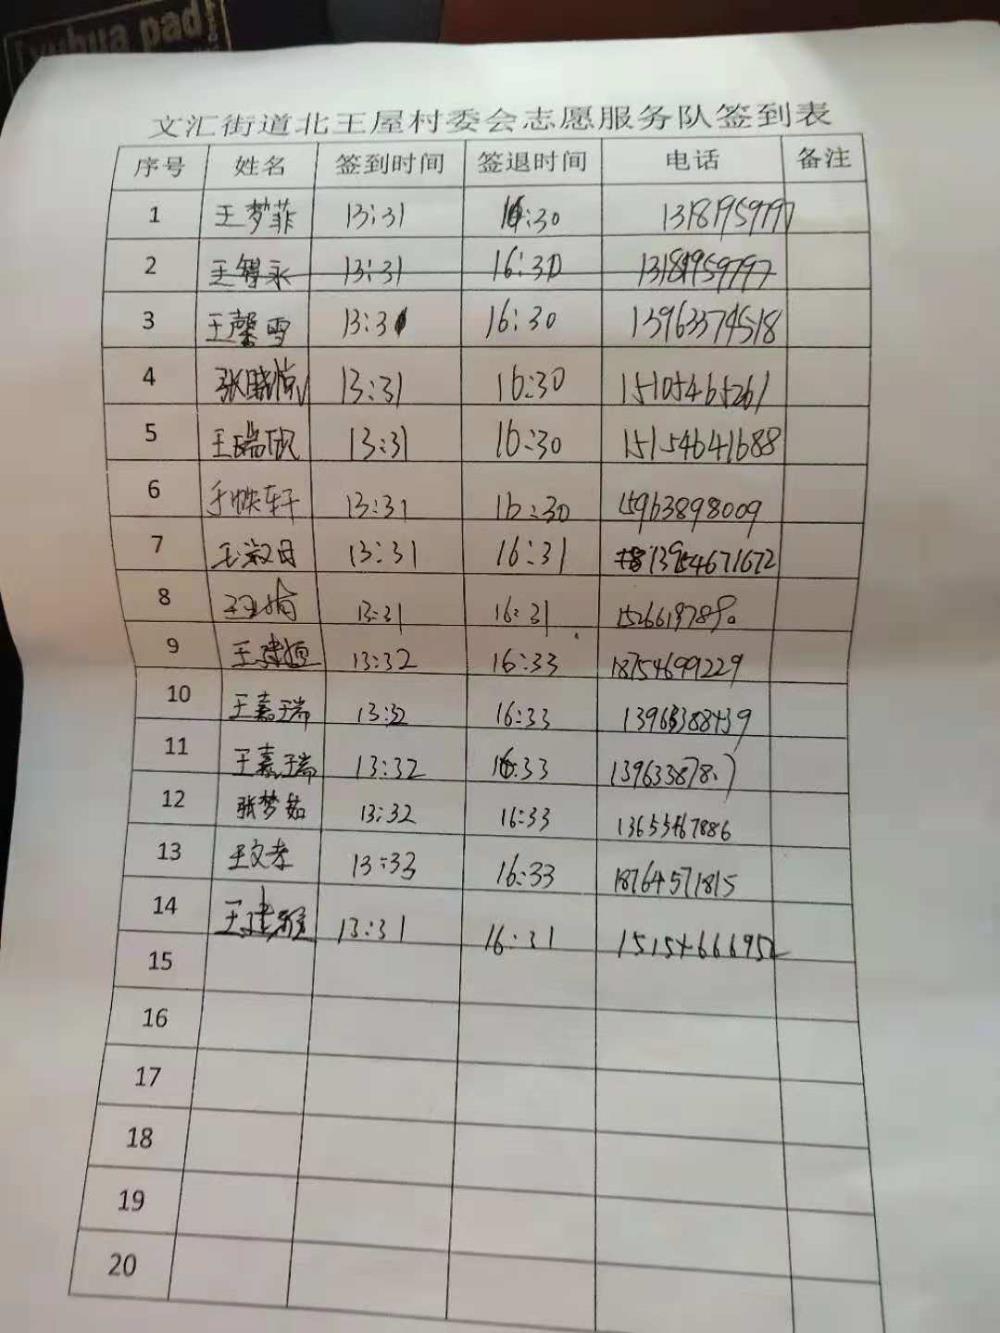 yuhua pad
文汇街道北王屋村委会志愿服务队签到表
序号 姓名 签到时间 签退时间 电话 备注
1 王梦菲 13:31 16:30 13181959797
2 王智永 13:31 16:30 13181959797
3 王馨雪 13:31 16:30 13963374518
4 13:31 16:30 15105465261
5 王瑞欣 13:31 16:30 15154641688
6 13:31 16:30 15963898009
7 王淑日 13:31 16:31 13954671672
8 13:31 16:31
9 13:32 16:33 18754699229
10 王嘉瑞 13:32 16:33
11 王嘉瑞 13:32 16:33
12 张梦茹 13:32 16:33 13655467886
13 王文孝 13:33 16:33 18764571815
14 13:31 16:31 15154666952
15
16
17
18
19
20